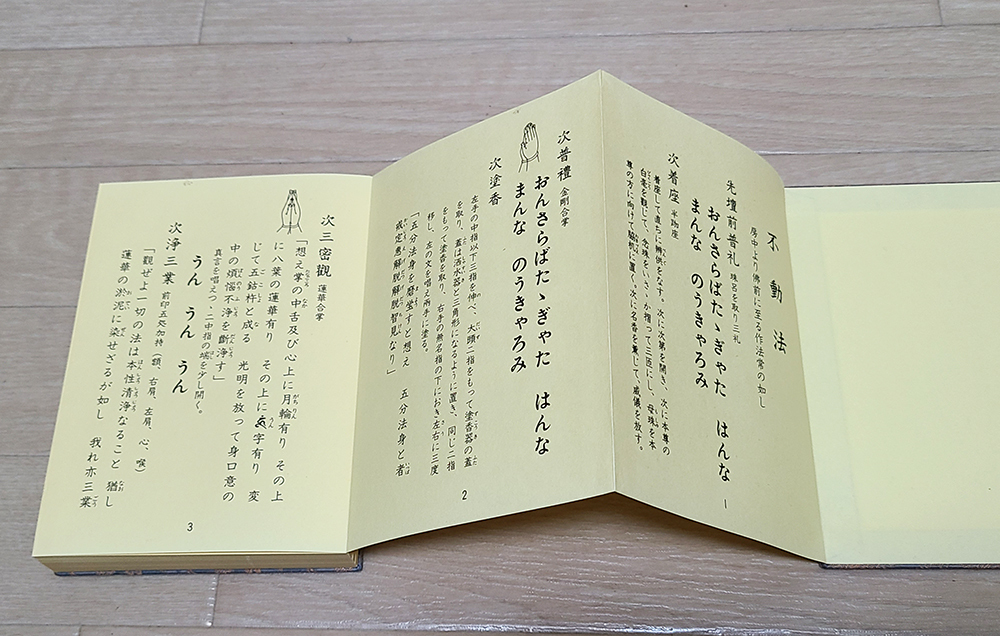 不動法
房中より佛前に至る作法常の如し
先壇前普礼 珠呂を取り三礼
おんさらばたゝぎゃた はんな
まんな のうきゃろみ
次着座 半跏座
着座して直ちに辨供をなす。次に次第を開き、次に本尊の
白毫を観じて、念珠をいさゝか摺って三匝にし、母珠を本
尊の方に向けて脇机に置く。次に名香を薫じて、威儀を放す。
1
次普禮 金剛合掌
おんさらばたゝぎゃた はんな
まんな のうきゃろみ
次塗香
左手の中指以下三指を伸べ、大頭二指をもって塗香器の蓋
を取り、蓋は洒水器と三角形になるように置き、同じ二指
をもって塗香を取り、右手の無名指の下におき左右に三度
移し、左の文を唱え兩手に塗る。
「五分法身を磨瑩すと想え 五分法身と者
戒定恵解脱解脱智見なり」
2
次三密觀 蓮華合掌
「想え掌の中舌及び心上に月輪有り その上
に八葉の蓮華有り その上に字有り 変
じて五鈷杵と成る 光明を放って身口意の
中の煩惱不浄を斷浄す」
真言を唱えつゝ二中指の端を少し開く。
うん うん うん
次浄三業 前印五処加持(額、右肩、左肩、心、喉)
「觀ぜよ一切の法は本性清浄なること 猶し
蓮華の淤泥に染せざるが如し 我れ亦三業
3